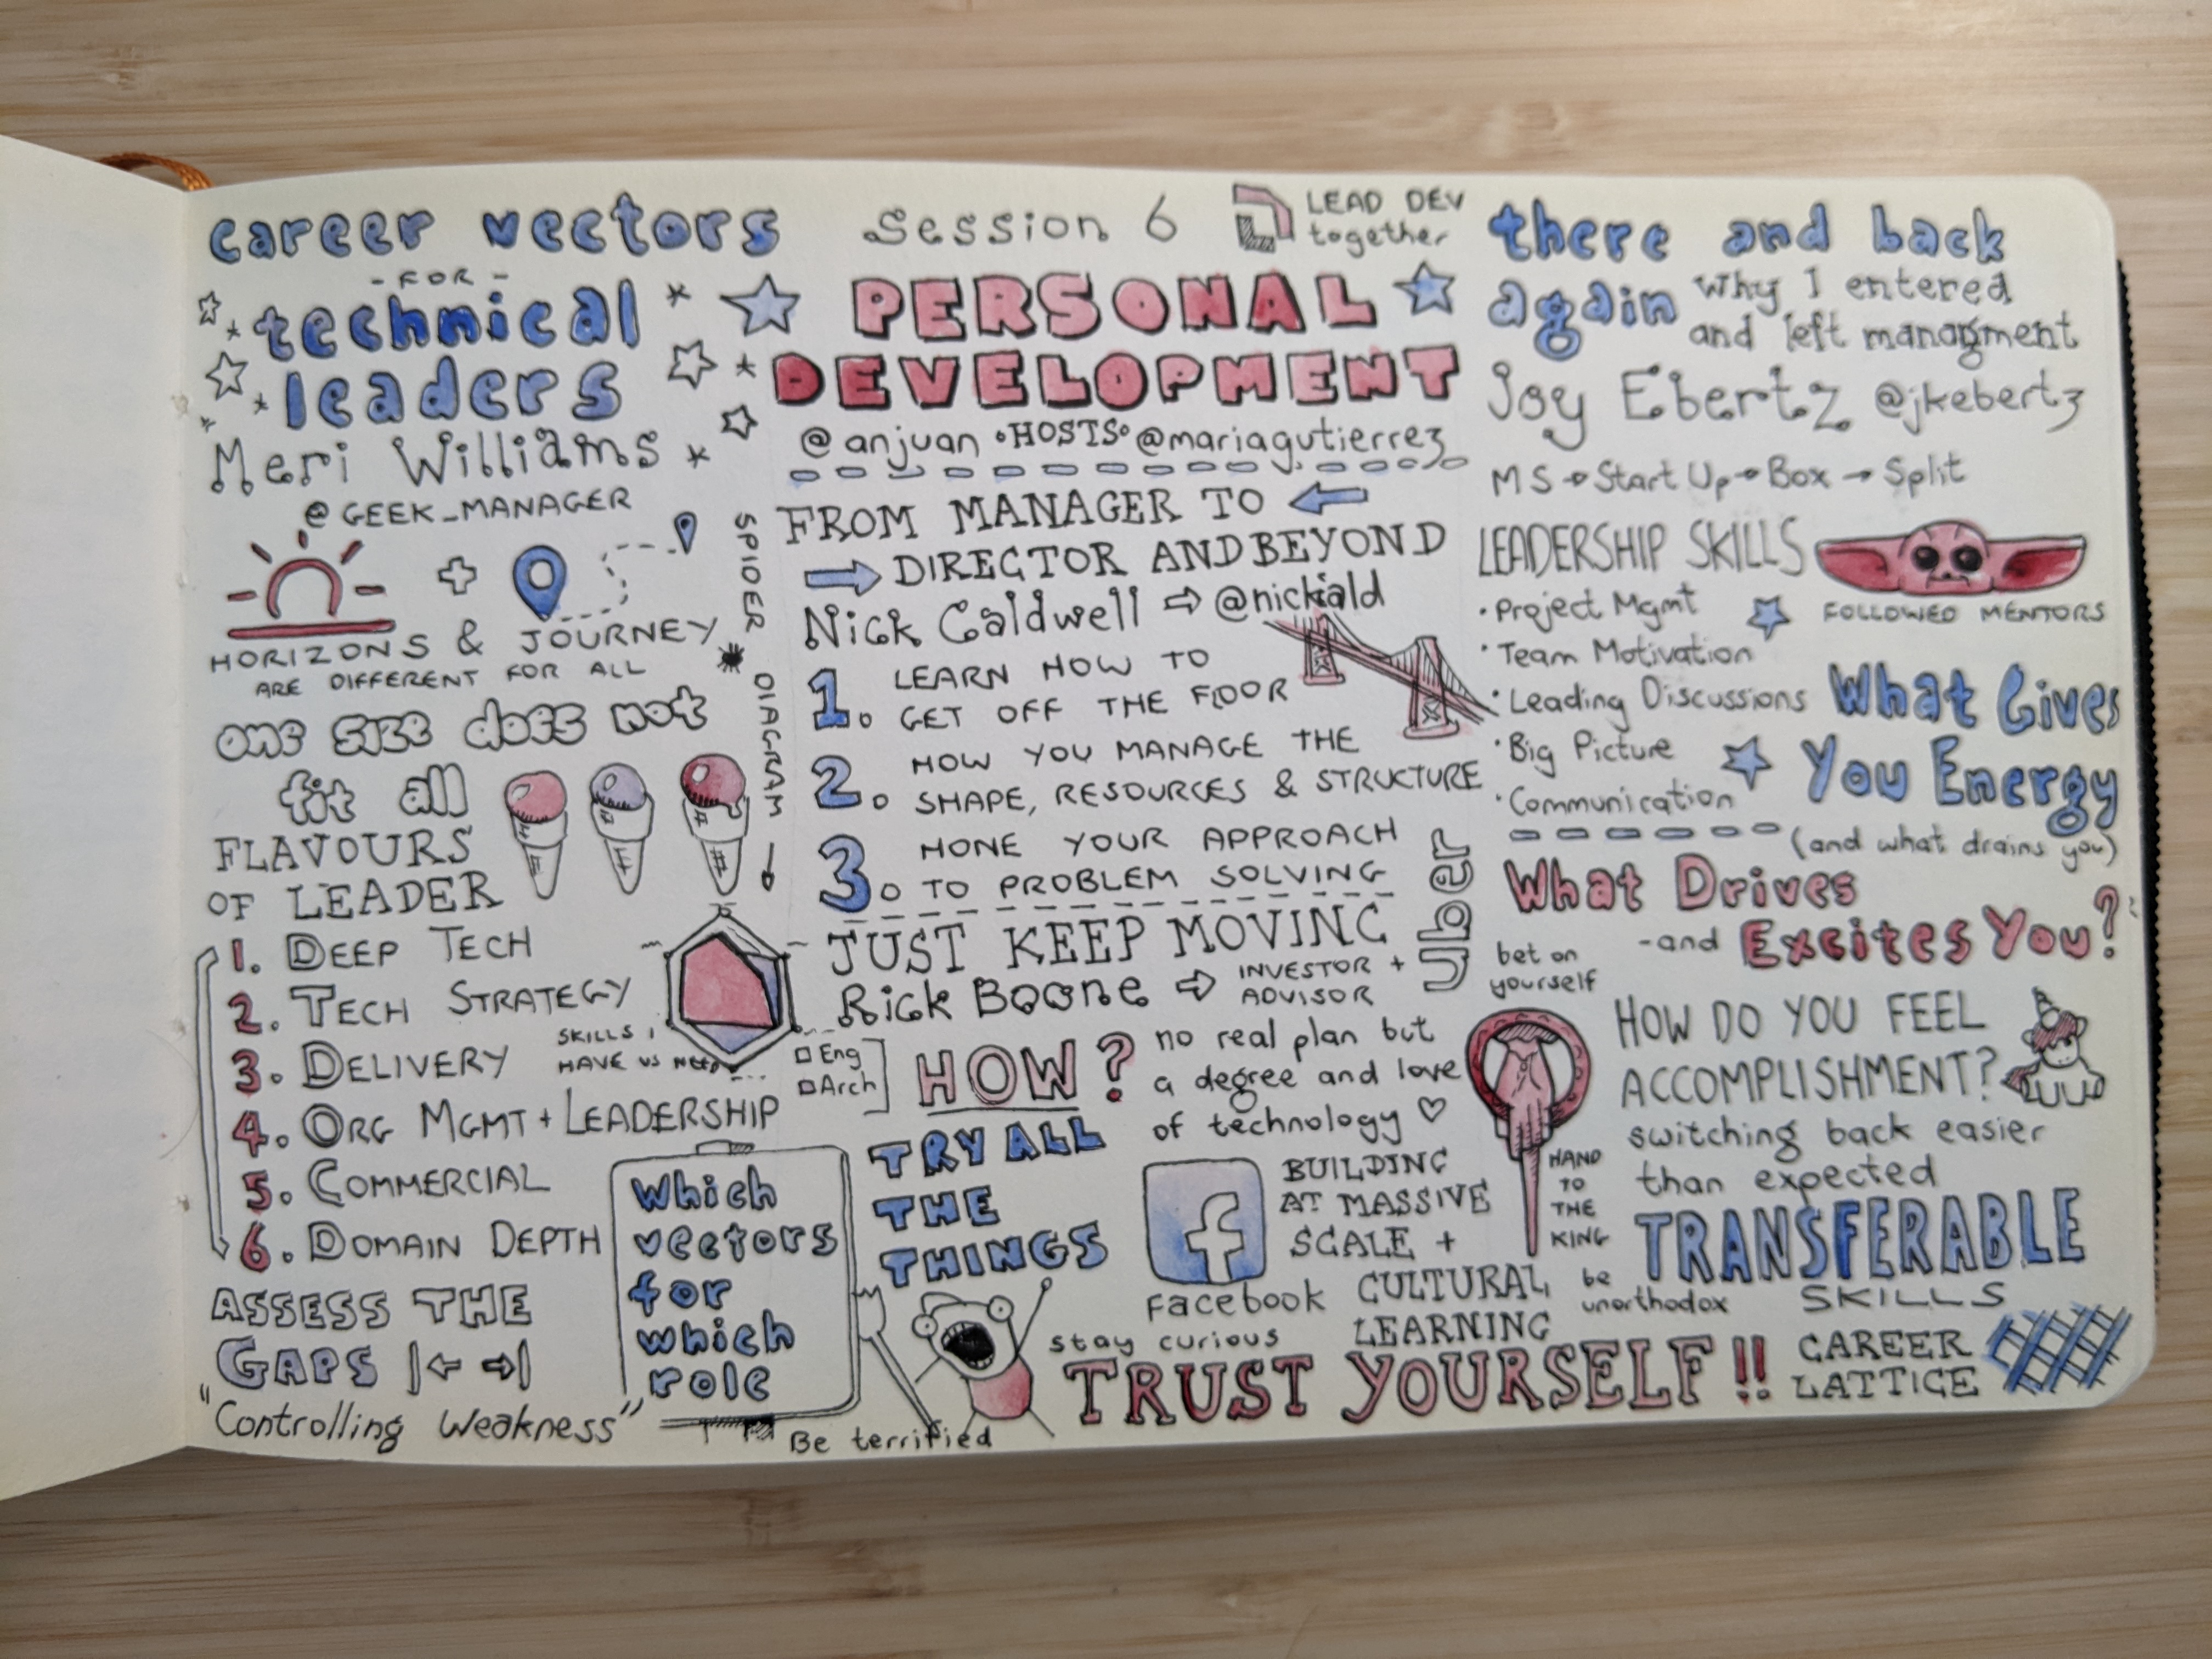 career vectors
- FOR -
technical
leaders
Meri Williams
@GEEK_MANAGER
HORIZONS & JOURNEY
ARE DIFFERENT FOR ALL
one size does not
fit all
FLAVOURS
OF LEADER
1. DEEP TECH
2. TECH STRATEGY
3. DELIVERY
4. ORG MGMT + LEADERSHIP
5. COMMERCIAL
6. DOMAIN DEPTH
SPIDER DIAGRAM
SKILLS I
HAVE VS NEED
Eng
Arch
ASSESS THE
GAPS
"Controlling Weakness"
Which
vectors
for
which
role
Session 6
LEAD DEV
together
PERSONAL
DEVELOPMENT
@anjuan •HOSTS• @mariagutierrez
FROM MANAGER TO
DIRECTOR AND BEYOND
Nick Caldwell ⇨
1. LEARN HOW TO
GET OFF THE FLOOR
2. HOW YOU MANAGE THE
SHAPE, RESOURCES & STRUCTURE
3. HONE YOUR APPROACH
TO PROBLEM SOLVING
JUST KEEP MOVING
Rick Boone ⇨ INVESTOR +
ADVISOR
Uber
HOW?
no real plan but
a degree and love
of technology ♡
TRY ALL
THE
THINGS
Be terrified
f
Facebook
BUILDING
AT MASSIVE
SCALE +
CULTURAL
LEARNING
stay curious
TRUST YOURSELF!!
there and back
again why I entered
and left managment
Joy Ebertz @jkebertz
MS → Start Up → Box → Split
LEADERSHIP SKILLS
• Project Mgmt
• Team Motivation
• Leading Discussions
• Big Picture
• Communication
FOLLOWED MENTORS
What Gives
You Energy
(and what drains you)
What Drives
-and Excites You?
bet on
yourself
HAND
TO
THE
KING
be
unorthodox
HOW DO YOU FEEL
ACCOMPLISHMENT?
switching back easier
than expected
TRANSFERABLE
SKILLS
CAREER
LATTICE